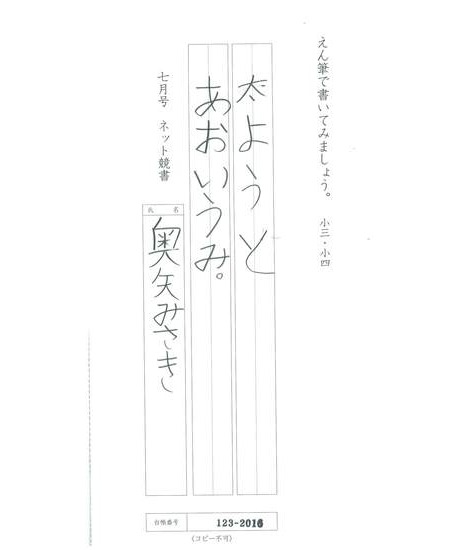 えん筆で書いてみましょう。 小三・小四
太ようと
あおいうみ。
七月号 ネット競書
氏名
奥矢みさき
台帳番号 123-2016
(コピー不可)